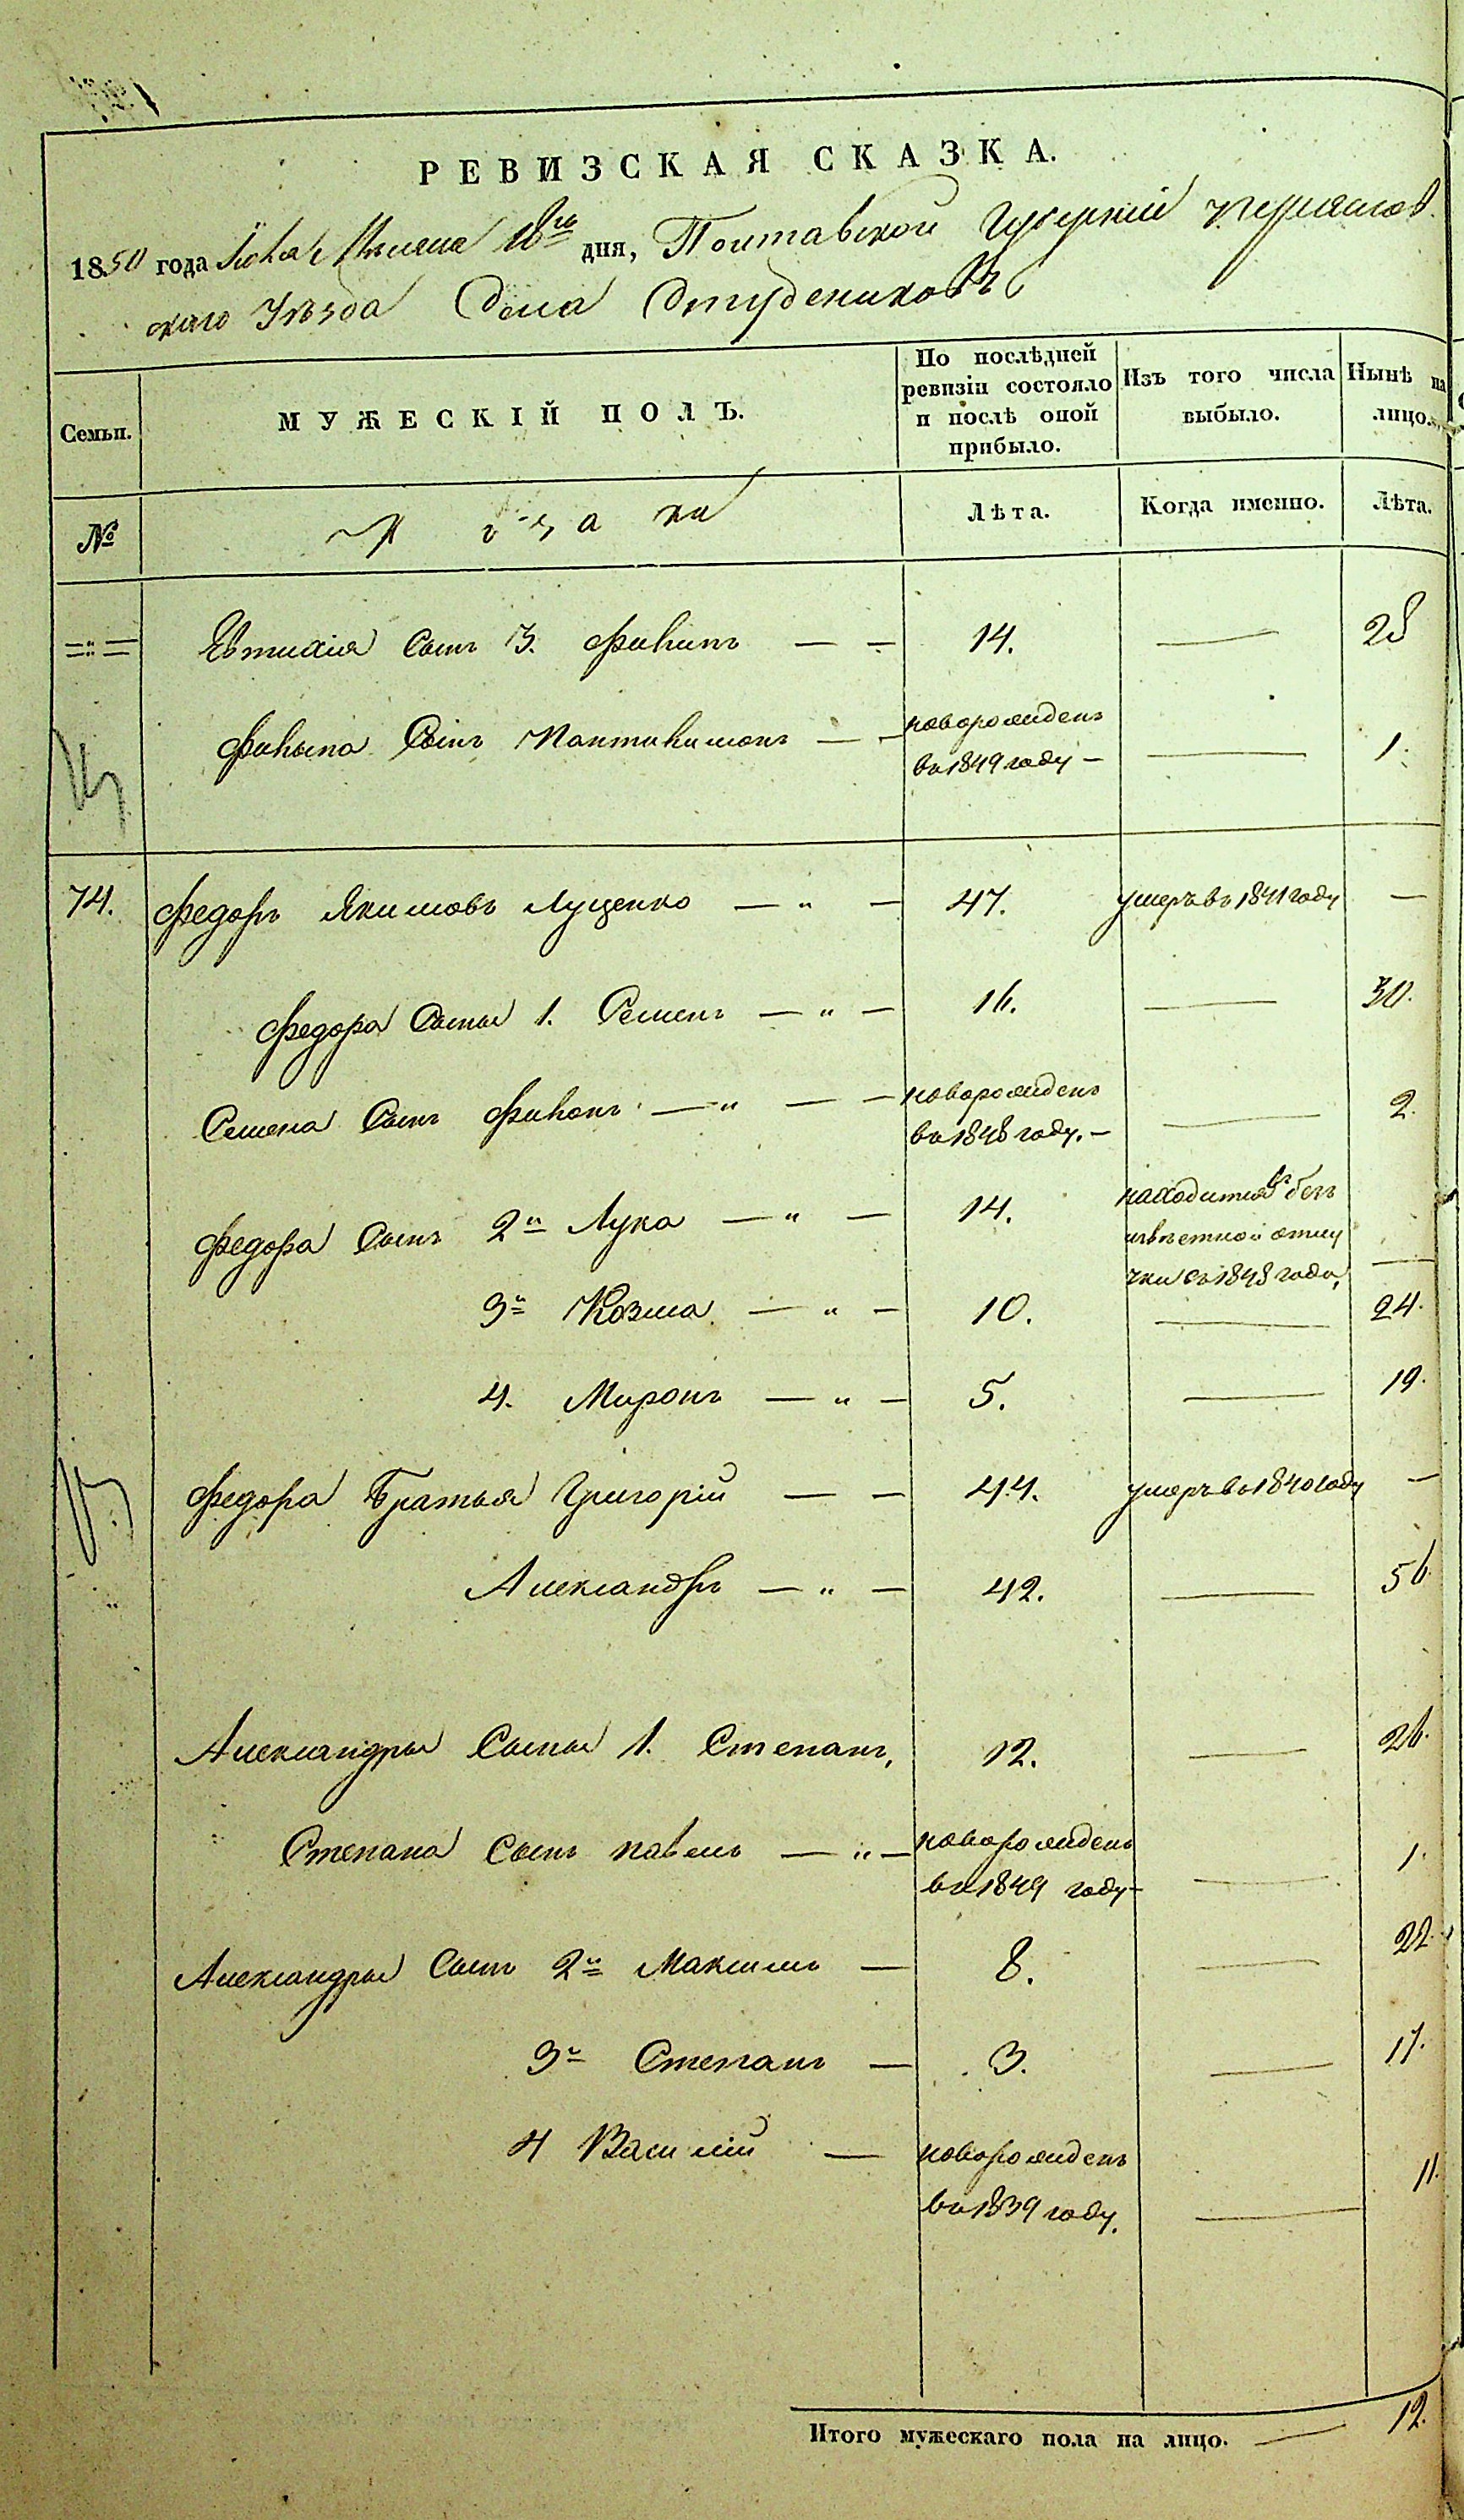 РЕВИЗСКАЯ СКАЗКА.
1850 года Іюля Месяца 18го дня, Полтавской Губерніи Переяслов
скаго Уѣзда Села Студениковъ
Семьи.
МУЖЕСКІЙ ПОЛЪ.
По послѣдней ревизіи состояло и послѣ оной прибыло.
Изъ того числа выбыло.
Нынѣ на лицо.
№
Козаки
Лѣта.
Когда именно.
Лѣта.
Евтихія Сынъ 3. Филипъ — — 14. — 28
Филипа Сынъ Пантилимонъ — — новорожденъ
въ 1849 году — — 1.
74. Федоръ Якимовъ Луценко — „ — 47. умеръ въ 1841 году —
Федора Сыны 1. Семенъ — „ — 16. — 30.
Семена Сынъ Филонъ — „ — — новорожденъ
въ 1848 году. — — 2.
Федора Сынъ 2й Лука — „ — 14. находится въ безъ
извѣстной отлу
чки съ 1848 года, —
3й Козма — „ — 10. — 24.
4. Миронъ — „ — 5. — 19.
Федора Братья Григорій — — 44. умеръ въ 1840 году —
Александръ — „ — 42. — 56.
Александры Сыны 1. Степанъ, 12. — 26.
Степана Сынъ павелъ — „ — новорожденъ
въ 1849 году — — 1.
Александры Сынъ 2й Максимъ — 8. — 22.
3й Степанъ — 3. — 17.
4 Василій — новорожденъ
въ 1839 году. — 11.
Итого мужескаго пола на лицо. — 12.